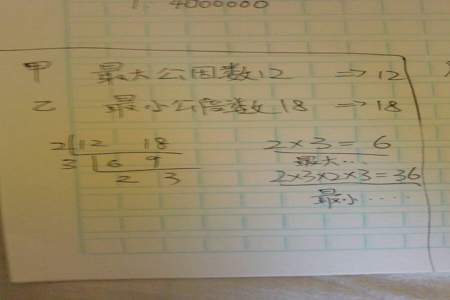 4000000
甲 最大公因数12 => 12
乙 最小公倍数18 => 18
2 12 18
3 6 9
2 3
2×3=6
最大...
2×3×2×3=36
最小....